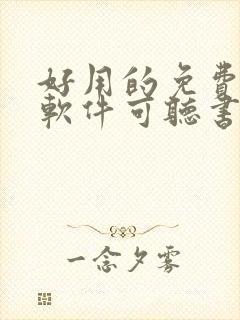 好用的免費
軟件可聽書
一念夕霧